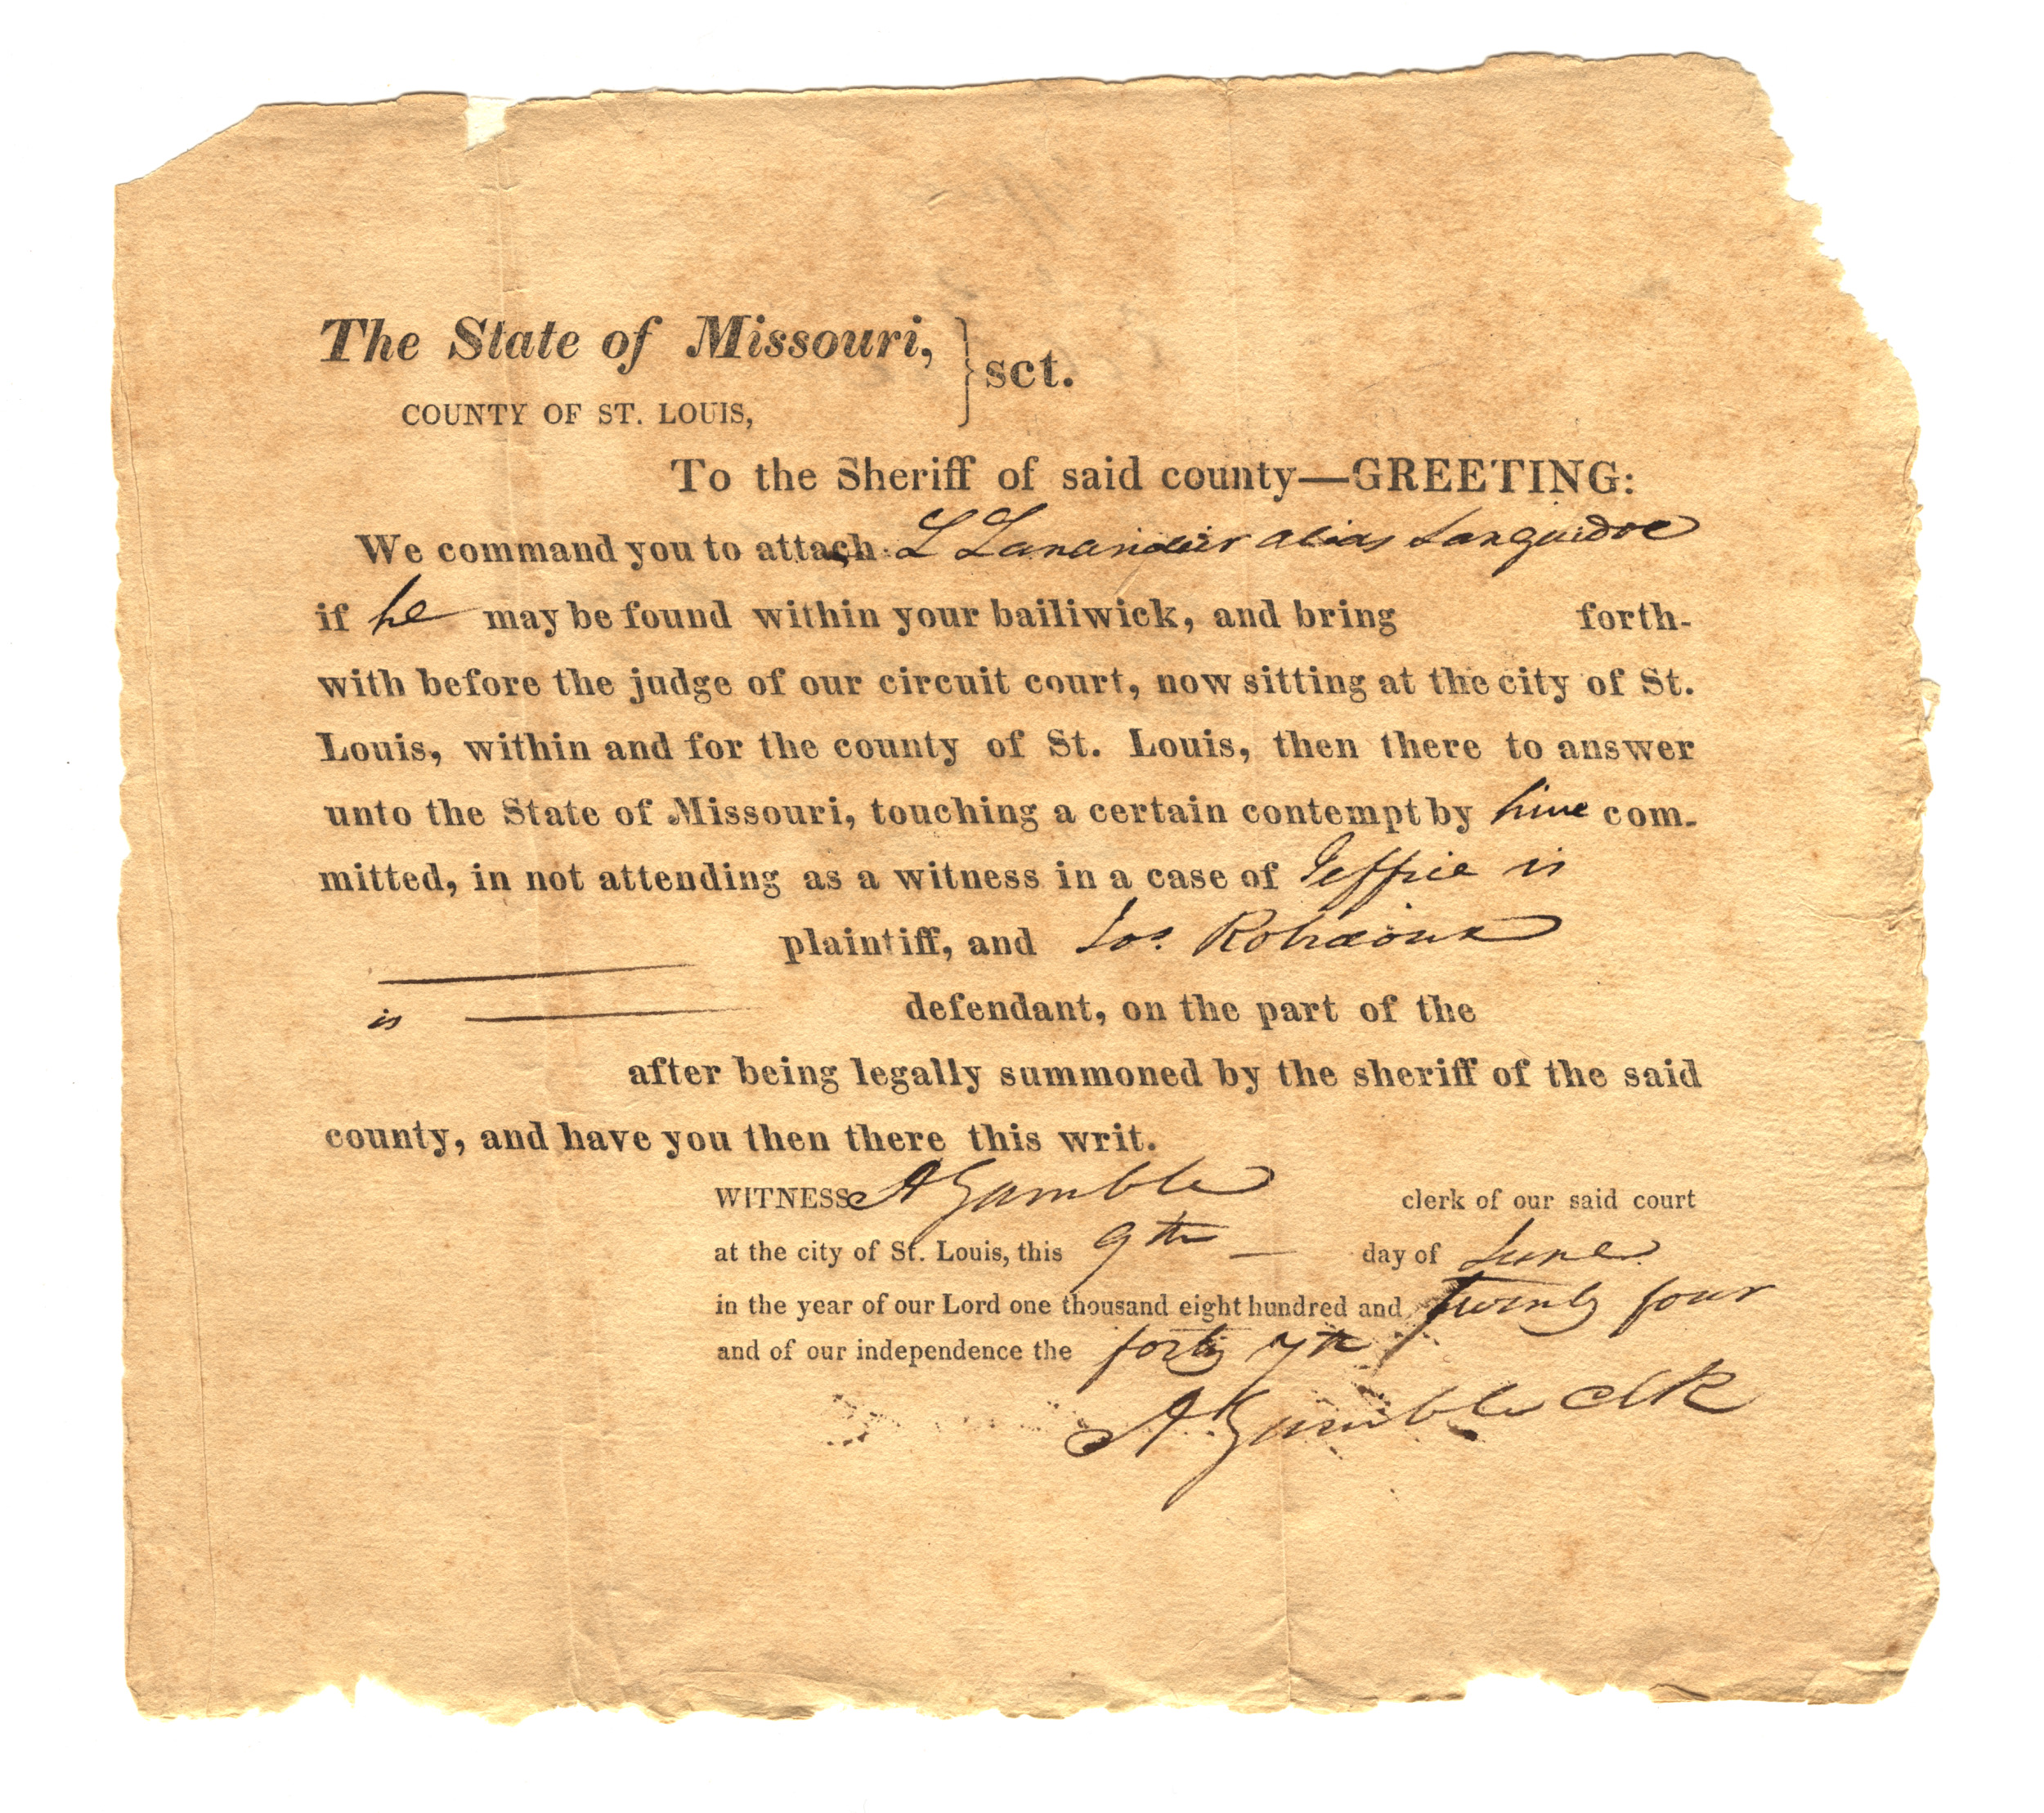 The State of Missouri, } sct.
COUNTY OF ST. LOUIS,
To the Sheriff of said county—GREETING:
We command you to attach L alias Languidoc
if he may be found within your bailiwick, and bring forth-
with before the judge of our circuit court, now sitting at the city of St.
Louis, within and for the county of St. Louis, then there to answer
unto the State of Missouri, touching a certain contempt by him com-
mitted, in not attending as a witness in a case of Jeffrie is
plaintiff, and Jos. Robidoux
is defendant, on the part of the
after being legally summoned by the sheriff of the said
county, and have you then there this writ.
WITNESS A Gamble clerk of our said court
at the city of St. Louis, this 9th day of June
in the year of our Lord one thousand eight hundred and twenty four
and of our independence the forty 7th
A Gamble clk